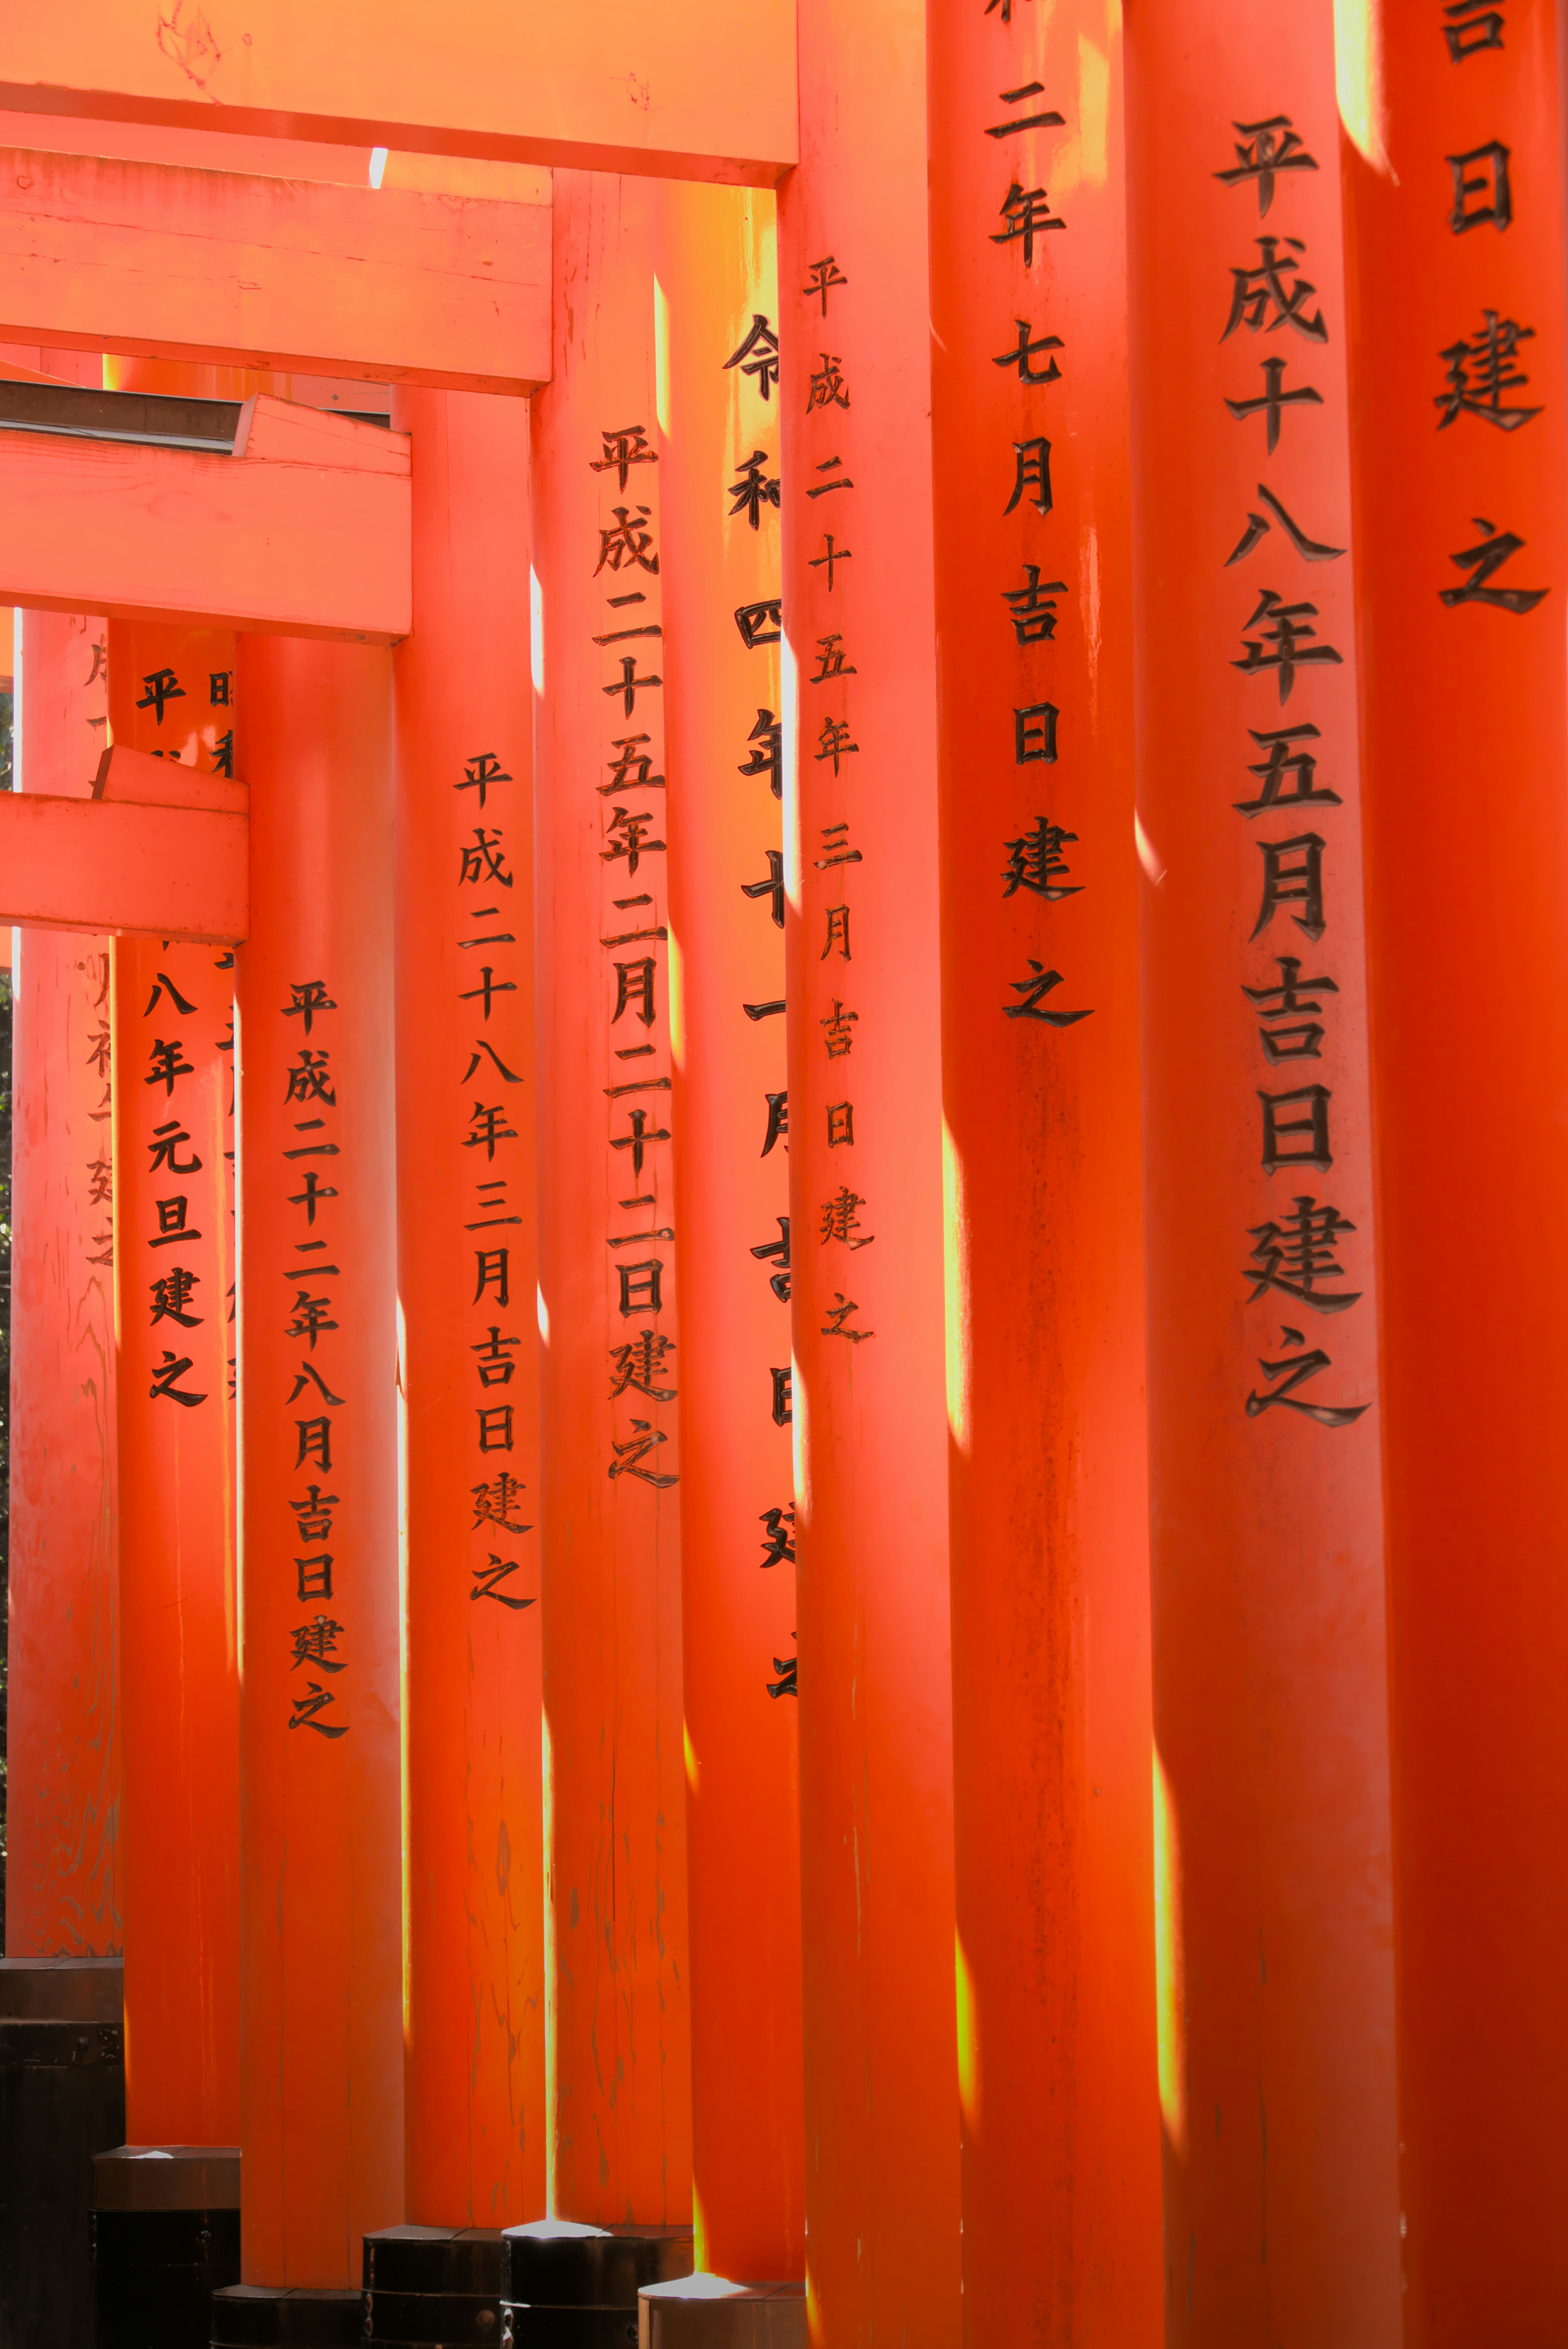 吉日建之
平成十八年五月吉日建之
二年七月吉日建之
平成二十五年三月吉日建之
令和四年十一月吉日建之
平成二十五年二月二十二日建之
平成二十八年三月吉日建之
平成二十二年八月吉日建之
昭和
平成
八年元旦建之
建之